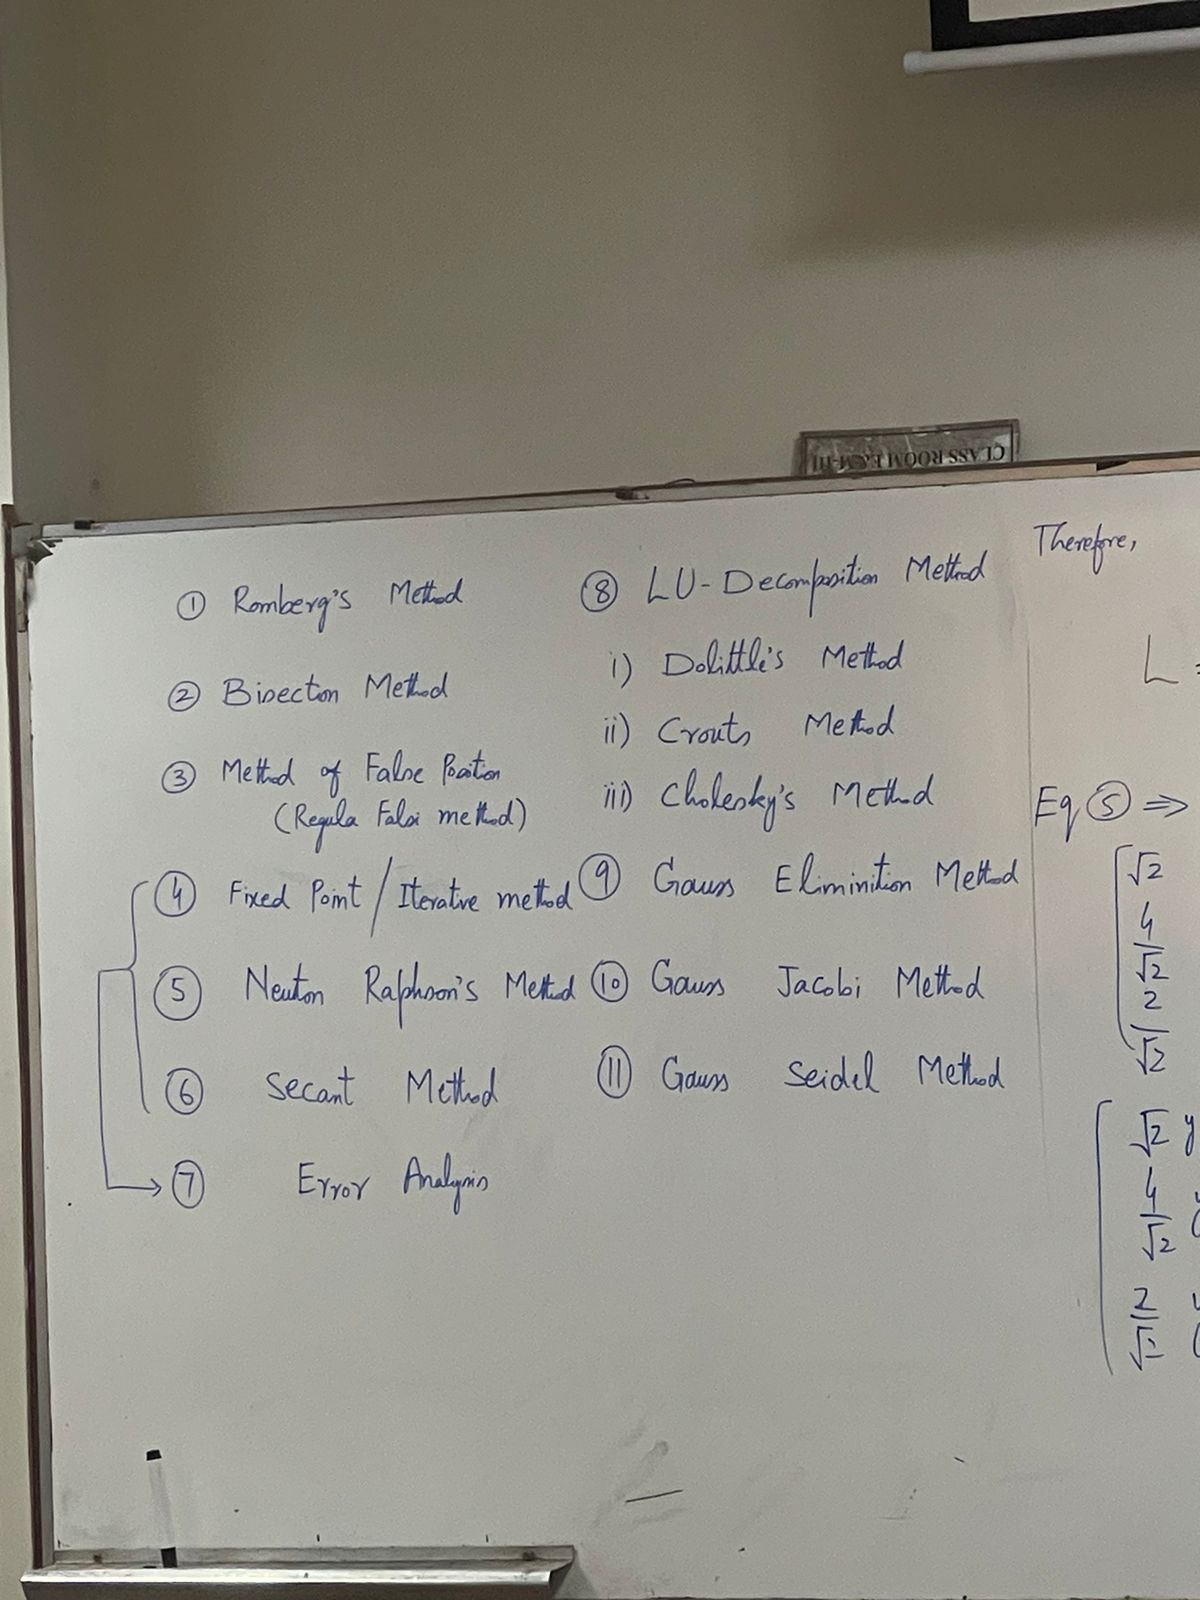 CLASS ROOM E&M-III
① Romberg's Method
② Bisection Method
③ Method of False Position
(Regula Falsi method)
④ Fixed Point / Iterative method
⑤ Newton Raphson's Method
⑥ Secant Method
⑦ Error Analysis
⑧ LU-Decomposition Method
i) Dolittle's Method
ii) Crouts Method
iii) Cholesky's Method
⑨ Gauss Eliminition Method
⑩ Gauss Jacobi Method
⑪ Gauss Seidel Method
Therefore,
L =
Eq ⑤ ⇒
√2
4/√2
2/√2
√2 y
4/√2
2/√2